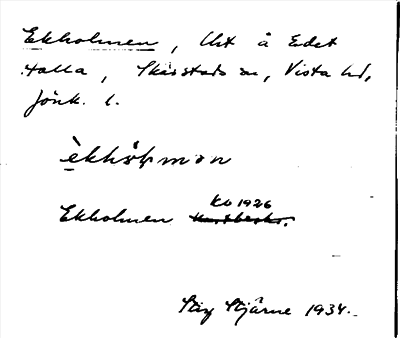 Ekholmen, Utt å Edet
Halla, Skärstads sn, Vista hd,
Jönk. l.
èkhòļmɔn
Ekholmen Kb 1926
Stig Stjärne 1934.